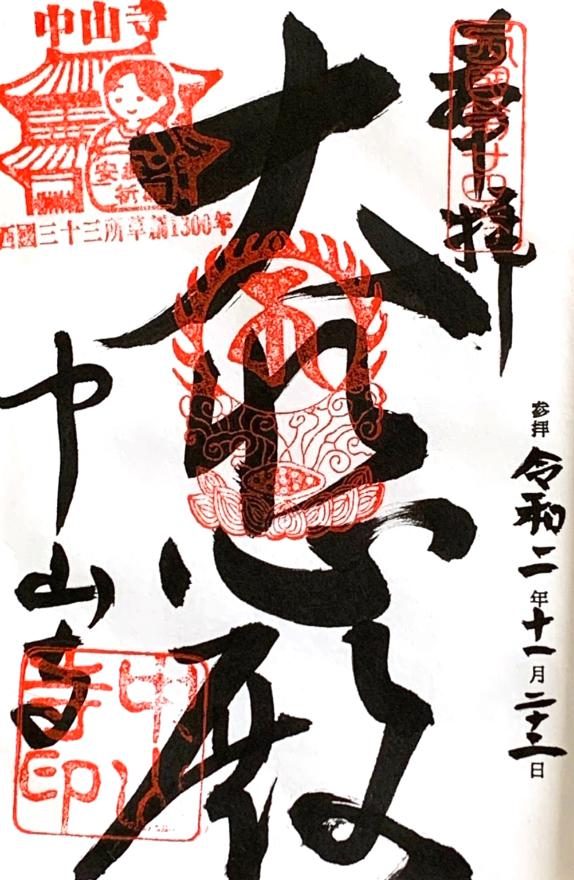 奉拝
西國第廿四番
参拝 令和二年十一月二十三日
大悲殿
中山寺
西國三十三所草創1300年
中山寺
中山寺印